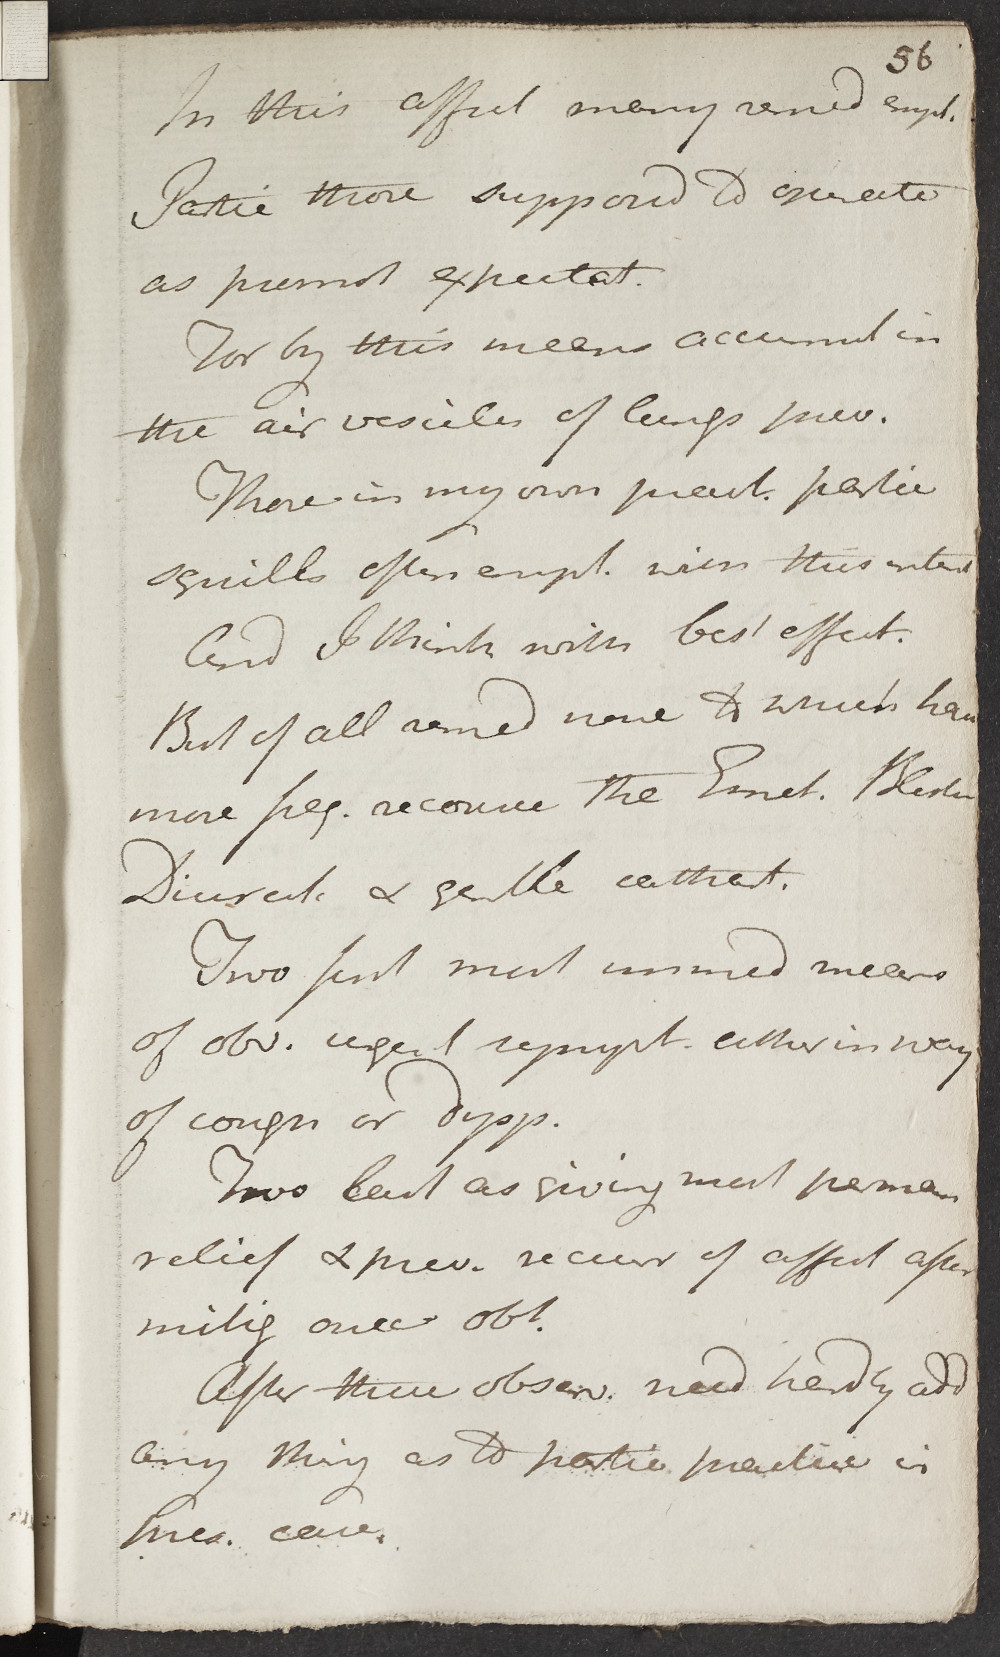 56
In this affect many remed empl.
Partic those supposed to operate
as promot expectat.
For by this means accumul in
the air vesicles of lungs prev.
Those in my own pract. partic
squills often empl. with this intent
And I think with best effect.
But of all remed none to which have
more freq. recourse the Emet. Blister
Diuret. & gentle cathart.
Two first most immed means
of obv. urgent sympt. either in way
of cough or dysp.
Two last as giving most perman
relief & prev. recurr of affect after
mitig once obt.
After these observ. need hardly add
any thing as to partic practice in
pres. case.